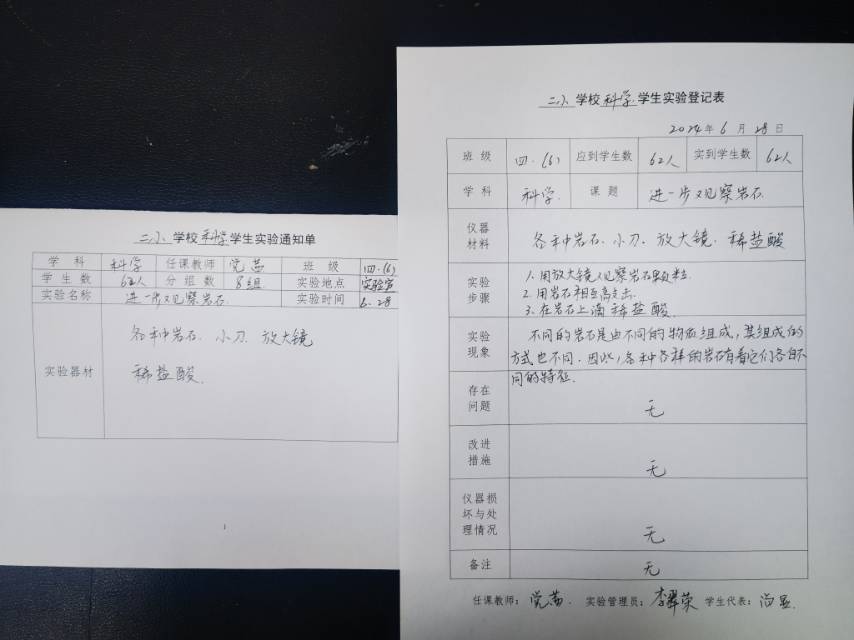 二小 学校 科学 学生实验通知单
学 科 科学 任课教师 党茜 班 级 四.(6)
学 生 数 62人 分 组 数 8组 实验地点 实验室
实验名称 进一步观察岩石 实验时间 6.28
各种岩石、小刀、放大镜
实验器材
稀盐酸.
1
二小 学校 科学 学生实验登记表
2024 年 6 月 28 日
班 级 四.(6) 应到学生数 62人 实到学生数 62人
学 科 科学 课 题 进一步观察岩石
仪器
材料
各种岩石、小刀、放大镜、稀盐酸
实验
步骤
1. 用放大镜观察岩石颗粒.
2. 用岩石相互高支击.
3. 在岩石上滴稀盐酸.
实验
现象
不同的岩石是由不同的物质组成,其组成的
方式也不同.因此,各种各样的岩石有着它们各自不
同的特征.
存在
问题
无
改进
措施
无
仪器损
坏与处
理情况
无
备注
无
任课教师: 党茜. 实验管理员: 李翠荣 学生代表: